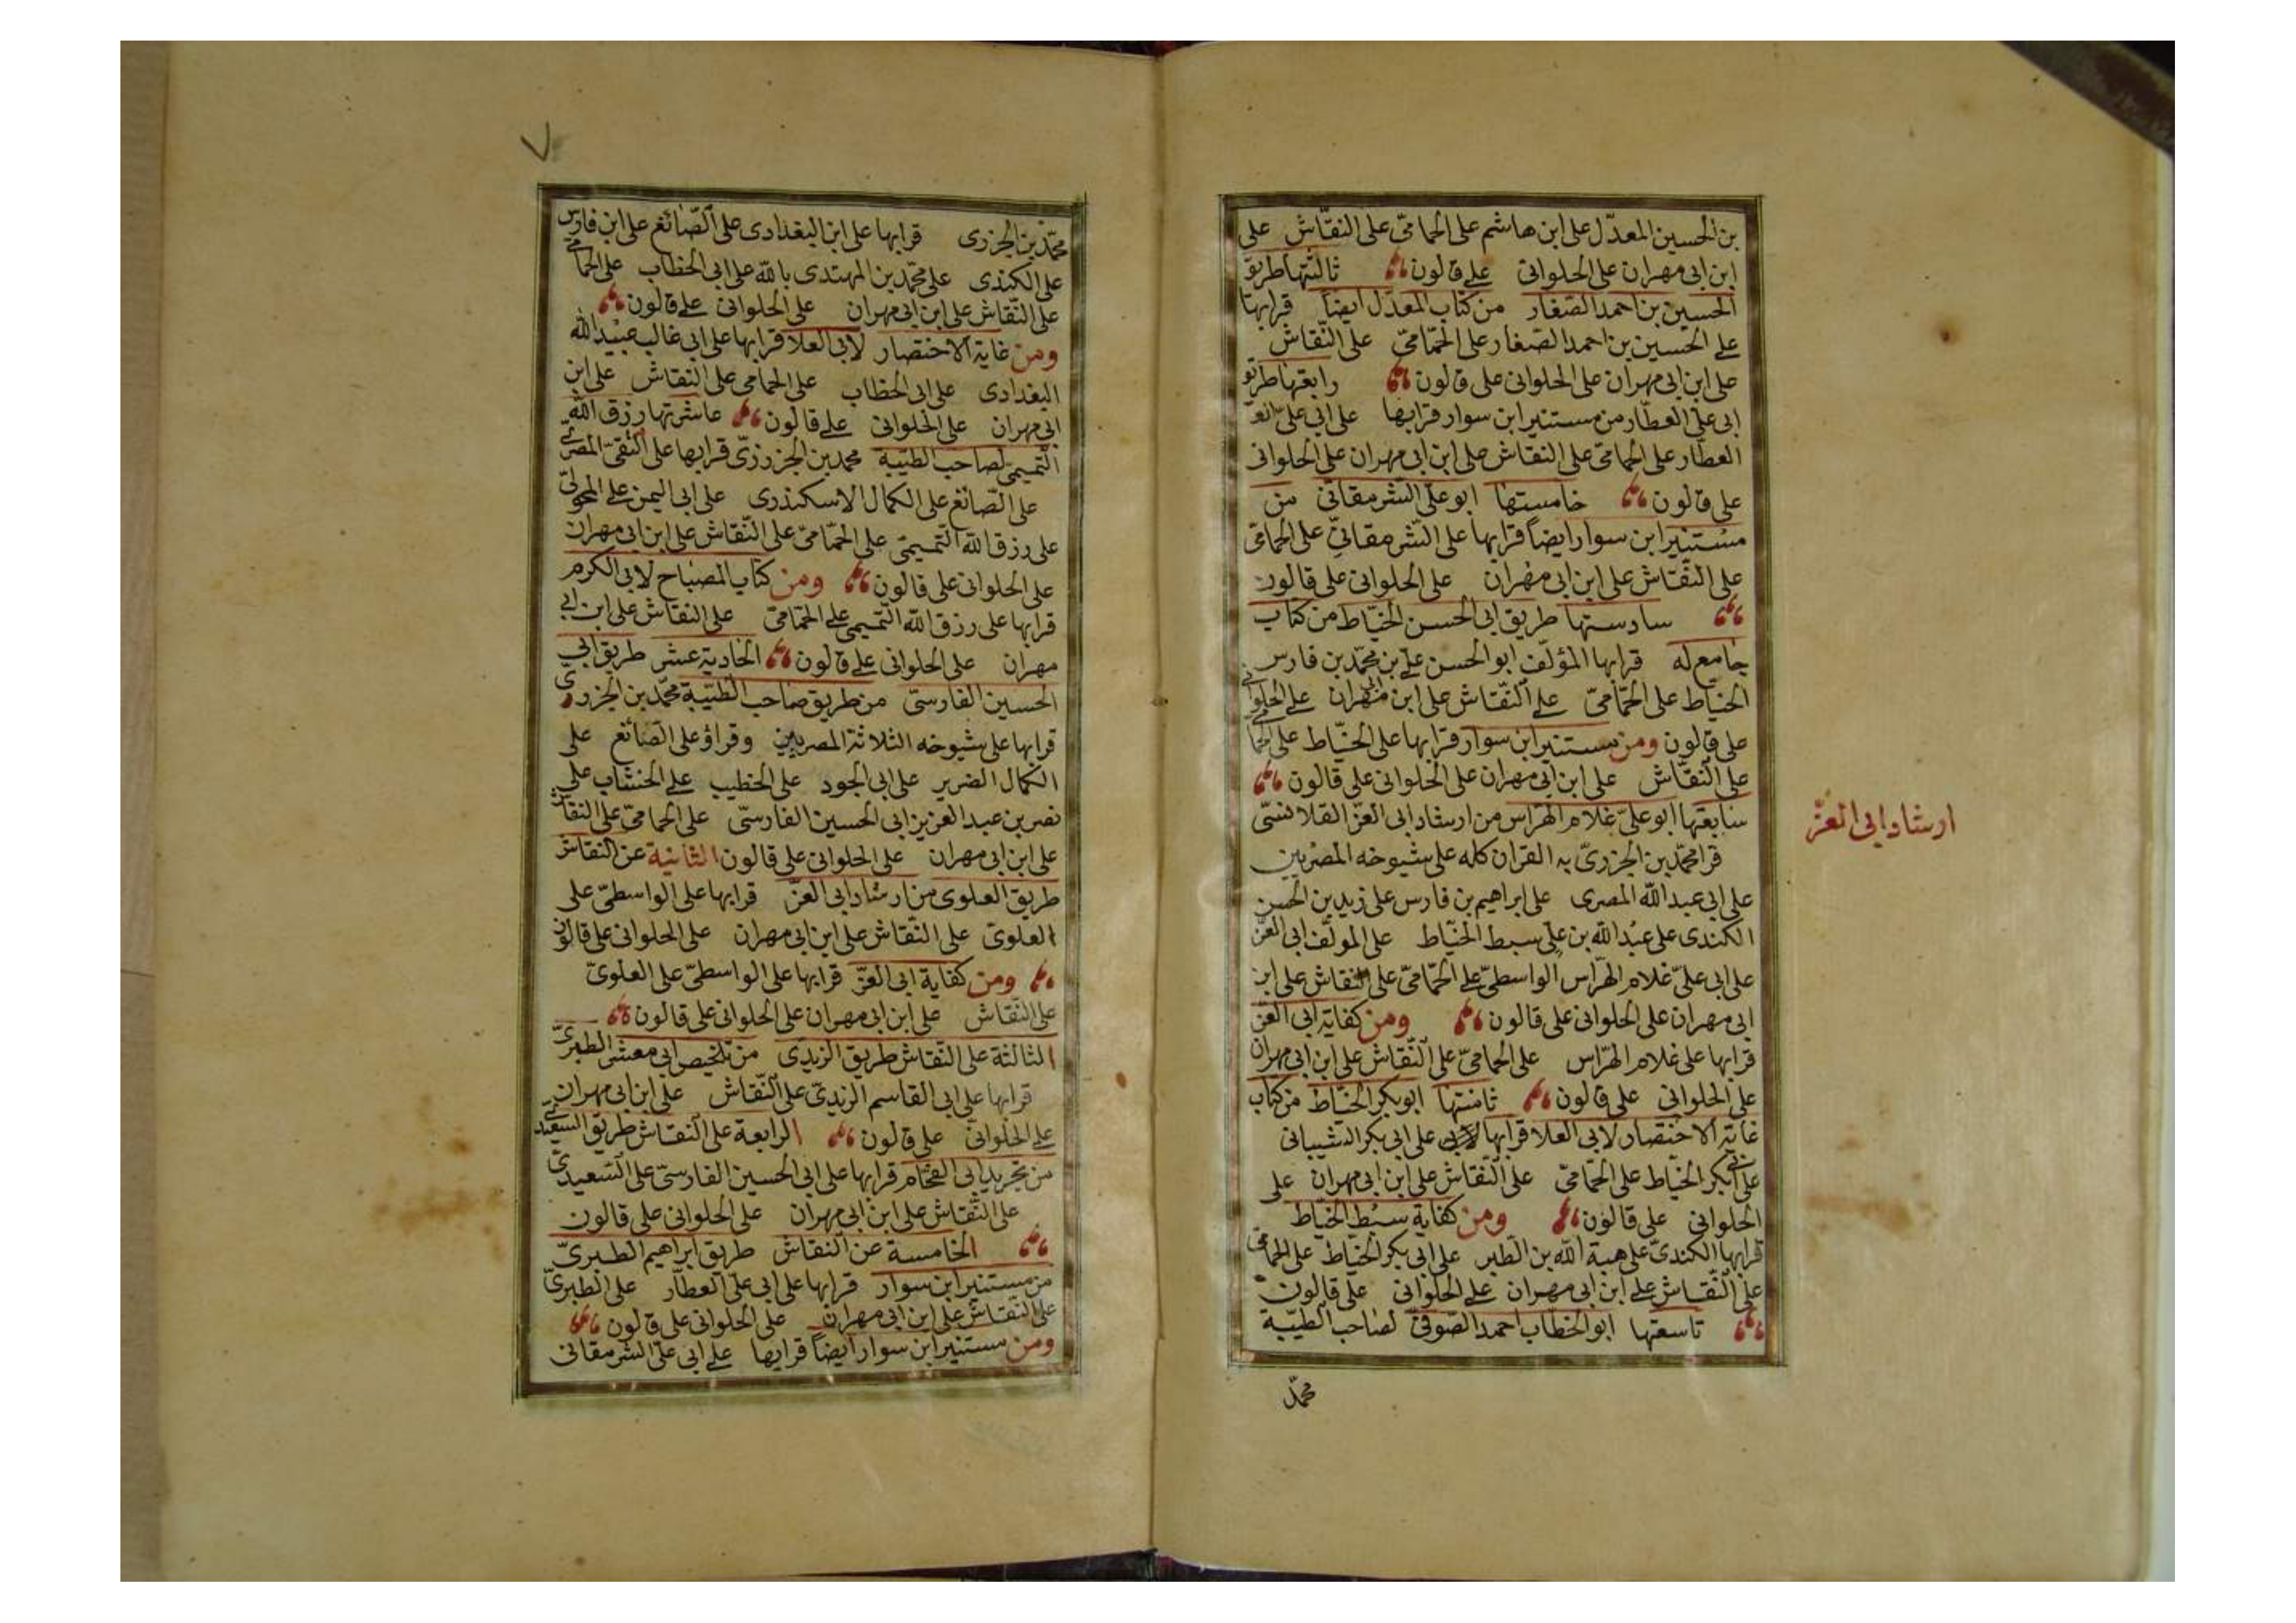 بن الحسين المعدّل على ابن هاشم على الحمامىّ على النقّاش على
ابن ابى مهران على الحلوانى على قالون ثالثتها طريق
الحسين بن احمد الصّفار من كتاب المعدّل ايضاً قرابها
على الحسين بن احمد الصّفار على الحمّامىّ على النّقاش
على ابن ابى مهران على الحلوانى على قالون رابعتها طريق
ابى علىّ العطّار من مستنير ابن سوار قرابها على ابى علىّ
العطّار على الحمامىّ على النقاش على ابن ابى مهران على الحلوانى
على قالون خامستها ابو علىّ الشّرمقانىّ من
مستنير ابن سوار ايضاً قرابها على الشّرمقانىّ على الحمامىّ
على النّقاش على ابن ابى مهران على الحلوانى على قالون
سادستها طريق ابى الحسن الخيّاط من كتاب
جامع له قرابها المؤلّف ابو الحسن على بن محمّد بن فارس
الخيّاط على الحمّامىّ على النّقاش على ابن ابى مهران على الحلوانى
على قالون ومن مستنير ابن سوار قرابها على الخيّاط على الحمامى
على النّقاش على ابن ابى مهران على الحلوانى على قالون
سابعتها ابو علىّ غلام الهرّاس من ارشاد ابى العزّ القلانسىّ
ارشاد ابى العزّ
قرا محمّد بن الجزرىّ به القران كله على شيوخه المصريين
على ابى عبد اللّه المصرى على ابراهيم بن فارس على زيد بن الحسن
الكندى على عبد اللّه بن علىّ سبط الخيّاط على المولّف ابى العزّ
على ابى علىّ غلام الهرّاس الواسطىّ على الحمّامىّ على النقاش على ابن
ابى مهران على الحلوانى على قالون ومن كفاية ابى العزّ
قرابها على غلام الهرّاس على الحمامىّ على النّقاش على ابن ابى مهران
على الحلوانى على قالون ثامنتها ابو بكر الخيّاط من كتاب
غاية الاختصار لابى العلا قرابها على ابى بكر الشيبانى
على ابى بكر الخيّاط على الحمّامىّ على النّقاش على ابن ابى مهران على
الحلوانى على قالون ومن كفاية سبط الخيّاط
قرابها الكندىّ على هبة اللّه بن الطبر على ابى بكر الخيّاط على الحمامى
على النّقاش على ابن ابى مهران على الحلوانى على قالون
تاسعتها ابو الخطّاب احمد الصّوفىّ لصاحب الطيّبة
محمّد
٧
محمّد بن الجزرى قرابها على ابن البغدادى على الصّائغ على ابن فارس
على الكندى على محمّد بن المهتدى باللّه على ابى الخطاب على الحمامى
على النّقاش على ابن ابى مهران على الحلوانى على قالون
ومن غاية الاختصار لابى العلا قرابها على ابى غالب عبيد اللّه
البغدادى على ابى الخطاب على الحمامى على النقاش على ابن
ابى مهران على الحلوانى على قالون عاشرتها رزق اللّه
التّميمى لصاحب الطيّبة محمد بن الجزرىّ قرابها على التّقىّ المصرىّ
على الصّائغ على الكمال الاسكندرى على ابى اليمن على المحولىّ
على رزق اللّه التّميمىّ على الحمّامىّ على النّقاش على ابن ابى مهران
على الحلوانى على قالون ومن كتاب المصباح لابى الكرم
قرابها على رزق اللّه التّميمى على الحمّامىّ على النقاش على ابن ابى
مهران على الحلوانى على قالون الحادية عشر طريق ابى
الحسين الفارسىّ من طريق صاحب الطّيّبة محمّد بن الجزرىّ
قرابها على شيوخه الثلاثة المصريين وقراؤ على الصّائغ على
الكمال الضرير على ابى الجود على الخطيب على الخشاب على
نصر بن عبد العزيز ابى الحسين الفارسىّ على الحمامىّ على النقاش
على ابن ابى مهران على الحلوانى على قالون الثانية عن النقاش
طريق العلوى من ارشاد ابى العزّ قرابها على الواسطىّ على
العلوى على النّقاش على ابن ابى مهران على الحلوانى على قالون
ومن كفاية ابى العزّ قرابها على الواسطىّ على العلوىّ
على النّقاش على ابن ابى مهران على الحلوانى على قالون
الثالثة على النّقاش طريق الزيدىّ من تلخيص ابى معشر الطبرىّ
قرابها على ابى القاسم الزيدىّ على النّقاش على ابن ابى مهران
على الحلوانى على قالون الرابعة على النّقاش طريق السّعيدىّ
من تجريد ابى الفحّام قرابها على ابى الحسين الفارسىّ على السّعيدىّ
على النّقاش على ابن ابى مهران على الحلوانى على قالون
الخامسة عن النقاش طريق ابراهيم الطبرىّ
من مستنير ابن سوار قرابها على ابى علىّ العطّار على الطبرىّ
على النّقاش على ابن ابى مهران على الحلوانى على قالون
ومن مستنير ابن سوار ايضاً قرابها على ابى علىّ الشرمقانى